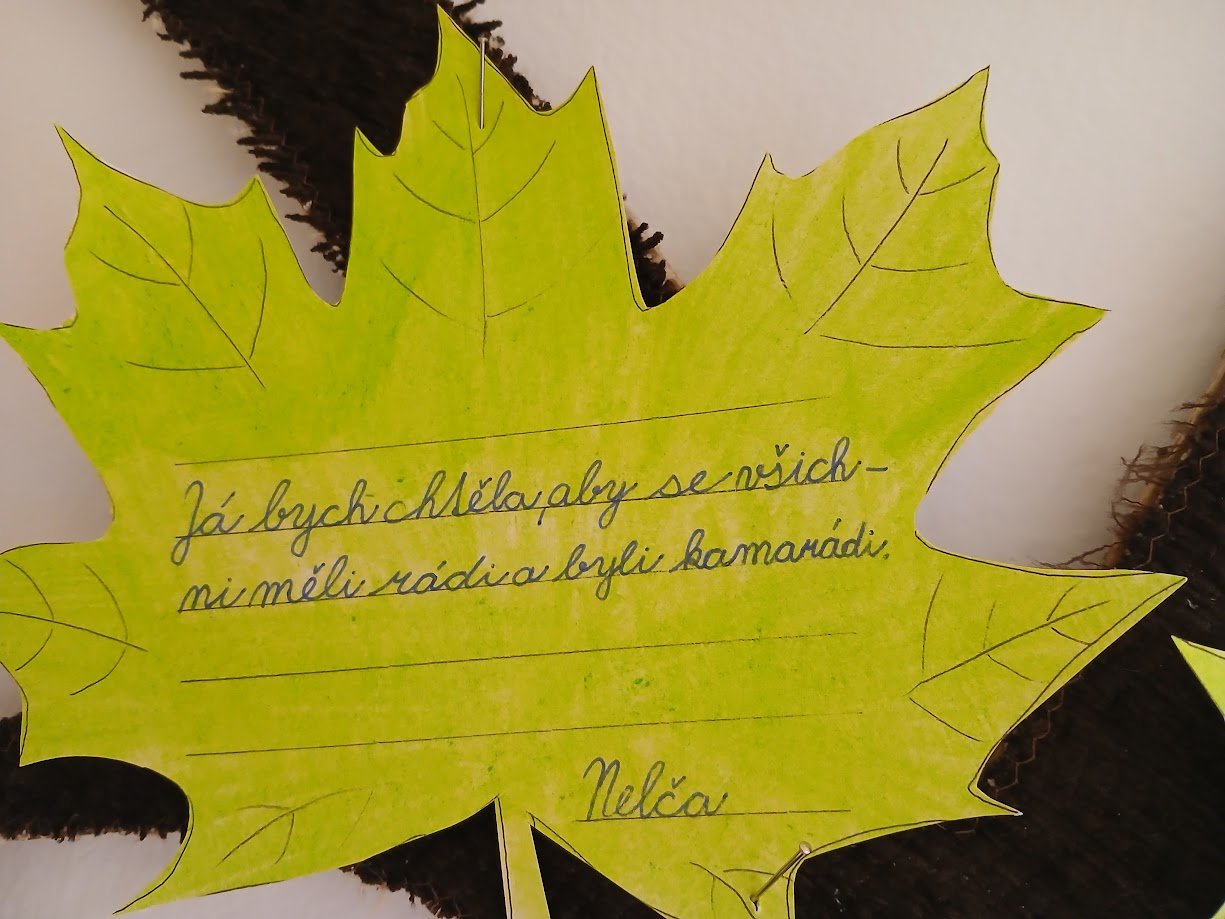 Já bych chtěla, aby se všich-
ni měli rádi a byli kamarádi.
Nelča